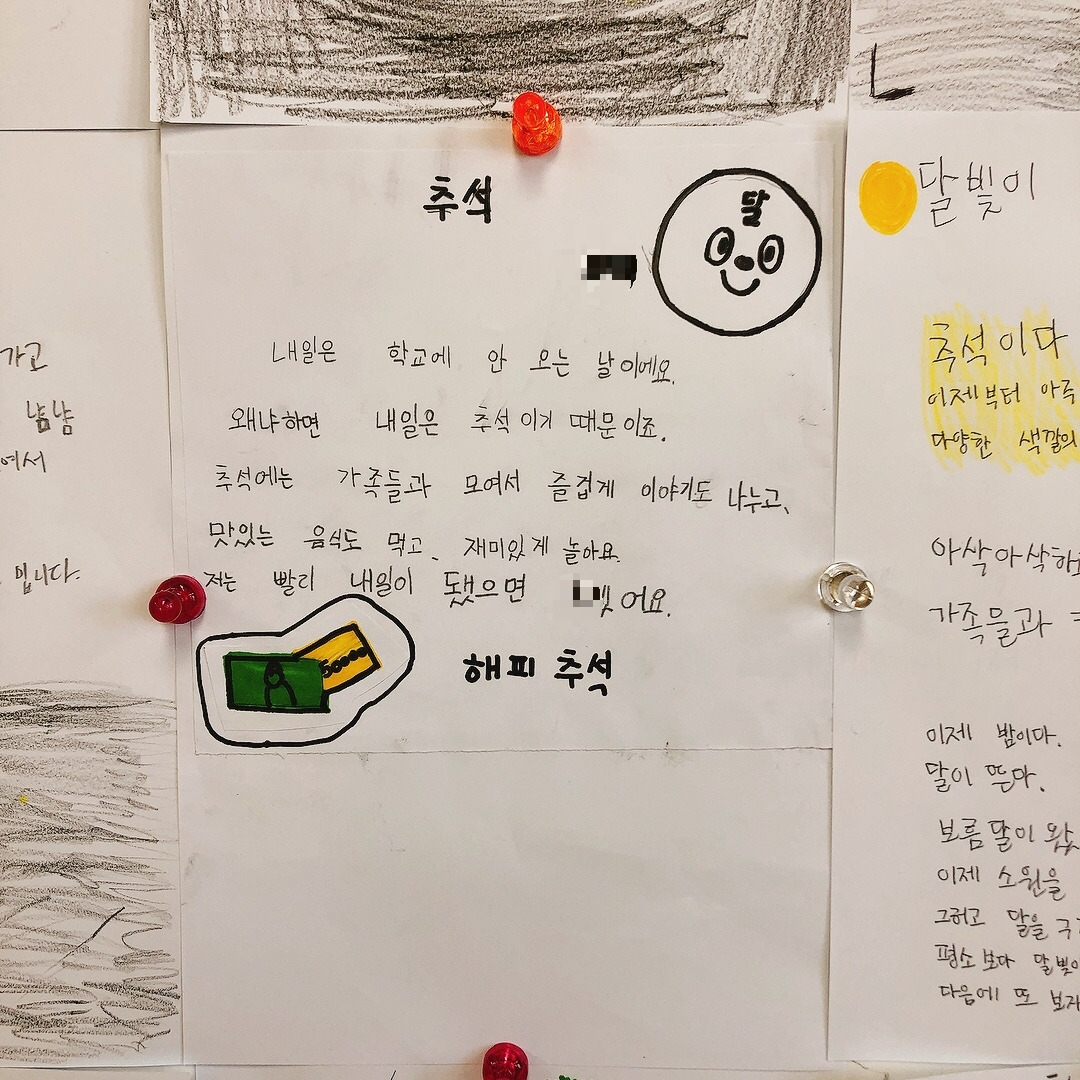 추석
달
내일은 학교에 안 오는 날이에요.
왜냐하면 내일은 추석이기 때문이죠.
추석에는 가족들과 모여서 즐겁게 이야기도 나누고,
맛있는 음식도 먹고, 재미있게 놀아요.
저는 빨리 내일이 됐으면 어요.
50000
해피 추석
가고
냠냠
여서
입니다.
달빛이
추석이다
이제부터 아주
다양한 색깔의
아삭아삭하
가족들과
이제 밤이다.
달이 뜬다.
보름달이 왔
이제 소원을
그러고 달을 구
평소보다 달빛이
다음에 또 보자